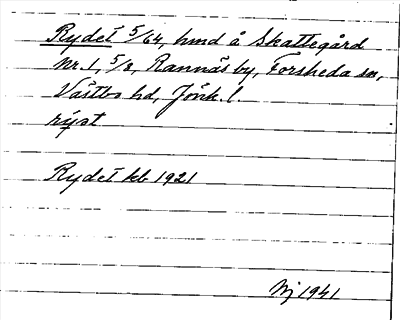 Rydet 5/64, hmd å Skattegård
Nr. 1, 5/8, Rannäs by, Forsheda sn,
Västbo hd, Jönk. l.
rýat
Rydet kb 1921
Nj 1941